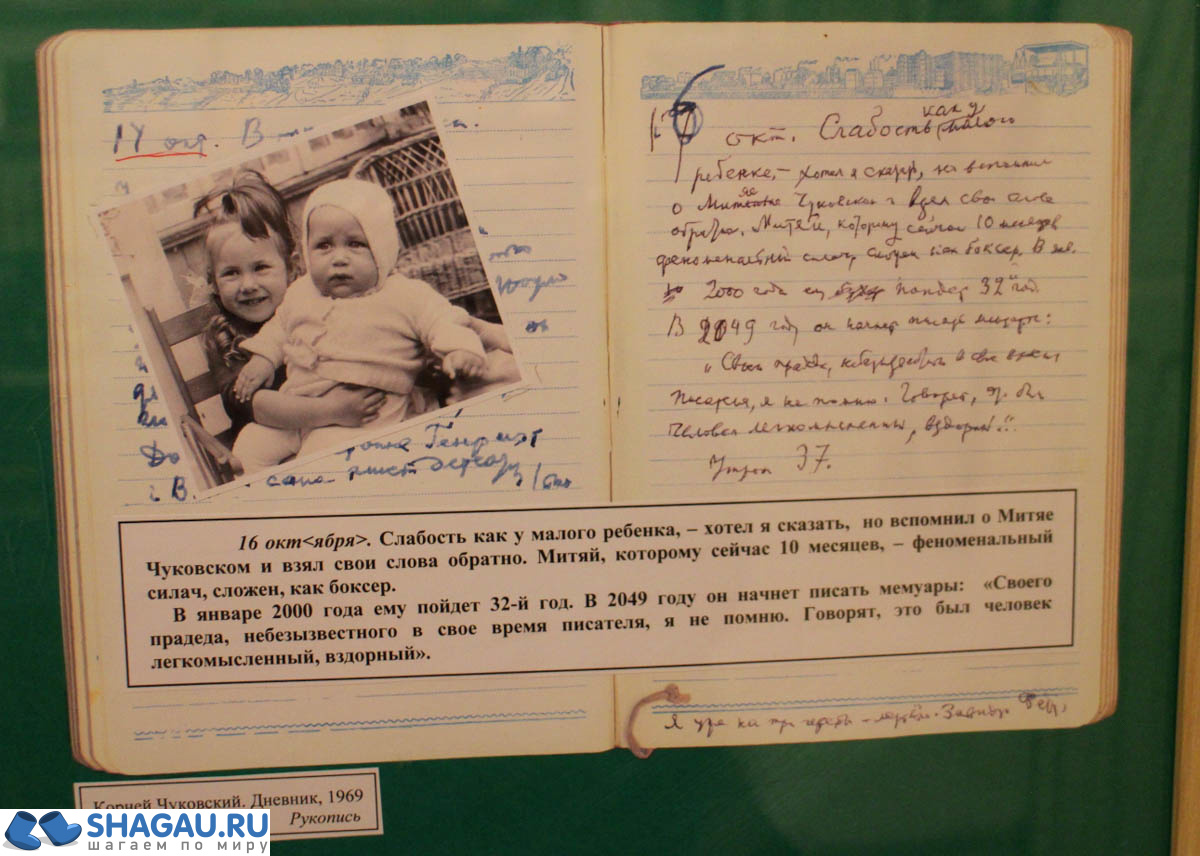 14 окт. В
Генрих
До
В.
окт. Слабость как у малого
ребенка, – хотел я сказать, но вспомнил
о Митяе Чуковском и взял свои слова
обратно. Митяй, которому сейчас 10 месяцев
феноменальный силач, сложен как боксер. В янв.
2000 года ему пойдет 32й год.
В 2049 году он начнет писать мемуары:
"Своего прадеда, небезызвестного в свое время
писателя, я не помню. Говорят, это был
человек легкомысленный, вздорный."
Утром 37.
16 окт<ября>. Слабость как у малого ребенка, – хотел я сказать, но вспомнил о Митяе
Чуковском и взял свои слова обратно. Митяй, которому сейчас 10 месяцев, – феноменальный
силач, сложен, как боксер.
В январе 2000 года ему пойдет 32-й год. В 2049 году он начнет писать мемуары: «Своего
прадеда, небезызвестного в свое время писателя, я не помню. Говорят, это был человек
легкомысленный, вздорный».
Я уже
Корней Чуковский. Дневник, 1969
Рукопись
SHAGAU.RU
шагаем по миру